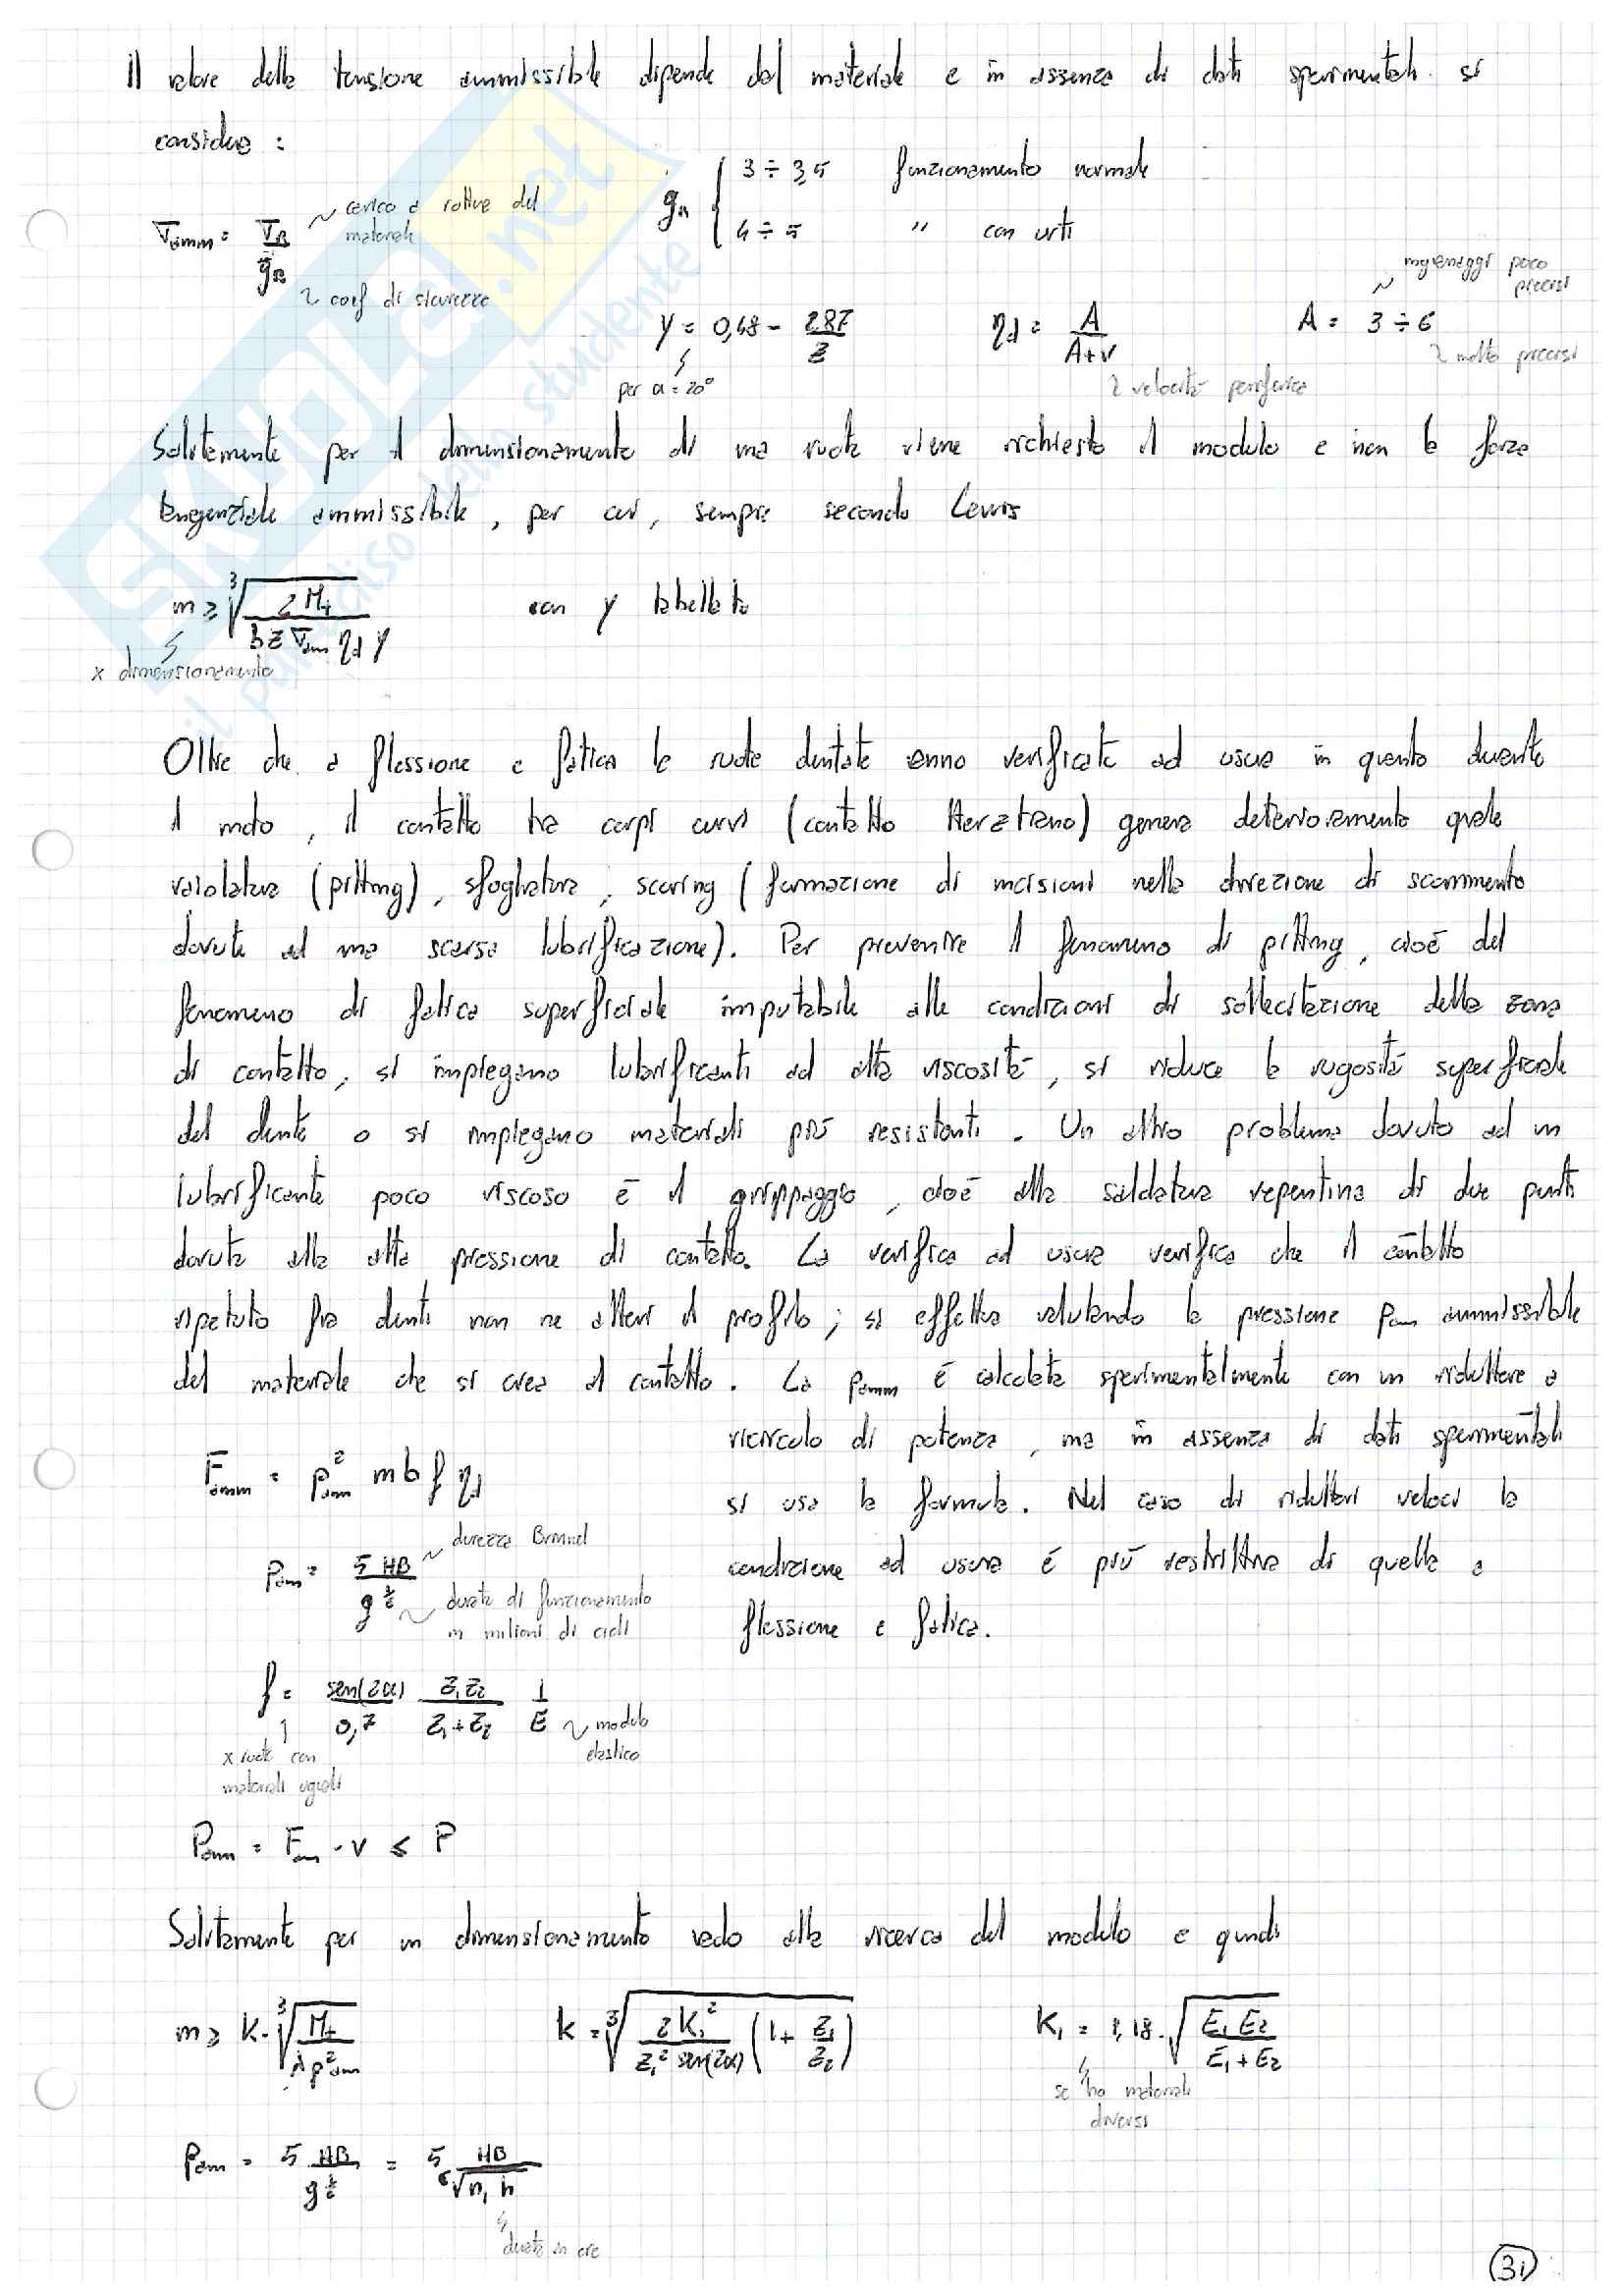 Il valore della tensione ammissibile dipende dal materiale e in assenza di dati sperimentali si
considera :
σamm = σR / gR
~ carico a rottura del
materiale
~ coef di sicurezza
gR { 3 ÷ 3,5 funzionamento normale
4 ÷ 5 " con urti
y = 0,48 - 2,87 / z
per α = 20°
ηd = A / A+v
~ velocità periferica
A = 3 ÷ 6
~ ingranaggi poco
precisi
~ molto precisi
Solitamente per il dimensionamento di una ruota viene richiesto il modulo e non la forza
tangenziale ammissibile, per cui, sempre secondo Lewis
m ≥ ∛(2 Mt / b z σam ηd y) con y tabellato
x dimensionamento
Oltre che a flessione e fatica le ruote dentate vanno verificate ad usura in quanto durante
il moto, il contatto tra corpi curvi (contatto Hertziano) genera deterioramento quale
vaiolatura (pitting), sfogliatura, scoring (formazione di incisioni nella direzione di scorrimento
dovute ad una scarsa lubrificazione). Per prevenire il fenomeno di pitting, cioè del
fenomeno di fatica superficiale imputabile alle condizioni di sollecitazione della zona
di contatto, si impiegano lubrificanti ad alta viscosità, si riduce la rugosità superficiale
del dente o si impiegano materiali più resistenti. Un altro problema dovuto ad un
lubrificante poco viscoso è il grippaggio, cioè alla saldatura repentina di due punti
dovuta alla alta pressione di contatto. La verifica ad usura verifica che il contatto
ripetuto fra denti non ne alteri il profilo; si effettua valutando la pressione pam ammissibile
del materiale che si crea al contatto. La pamm è calcolata sperimentalmente con un riduttore a
ricircolo di potenza, ma in assenza di dati sperimentali
si usa la formula. Nel caso di riduttori veloci la
condizione ad usura è più restrittiva di quella a
flessione e fatica.
Famm = p²am m b f ηd
pam = 5 HB / g^(1/6)
~ durezza Brinnel
~ durata di funzionamento
in milioni di cicli
f = sen(2α) / 0,7 z1 z2 / z1 + z2 1 / E
~ modulo
elastico
x ruote con
materiali uguali
Pamm = Fam · v ≤ P
Solitamente per un dimensionamento vado alla ricerca del modulo e quindi
m ≥ K · ∛(Mt / λ p²am) K = ∛(2 K1² / z1² sen(2α) (1 + z1 / z2)) K1 = 1,18 · √(E1 E2 / E1 + E2)
se ho materiali
diversi
pam = 5 HB / g^(1/6) = 5 HB / ⁶√(n1 h)
durata in ore
EXCLC.net
il paradiso dello studente
31